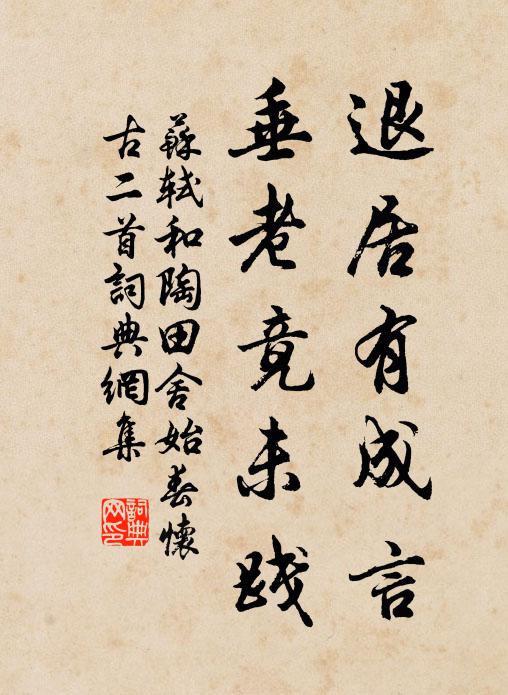 退居有成言
垂老竟未踐
蘇軾和陶田舍始春懷
古二首詞典網集
詞典
网印